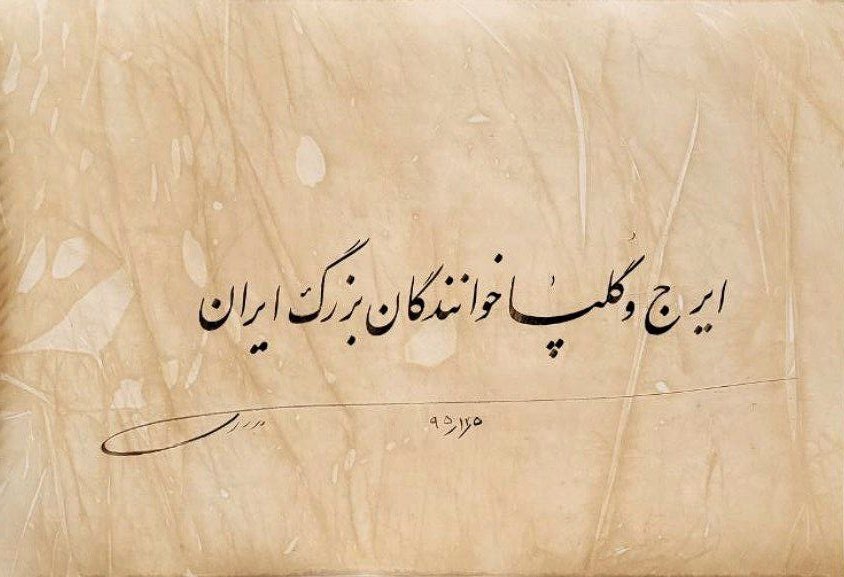 ایرج و گلپا خوانندگان بزرگ ایران